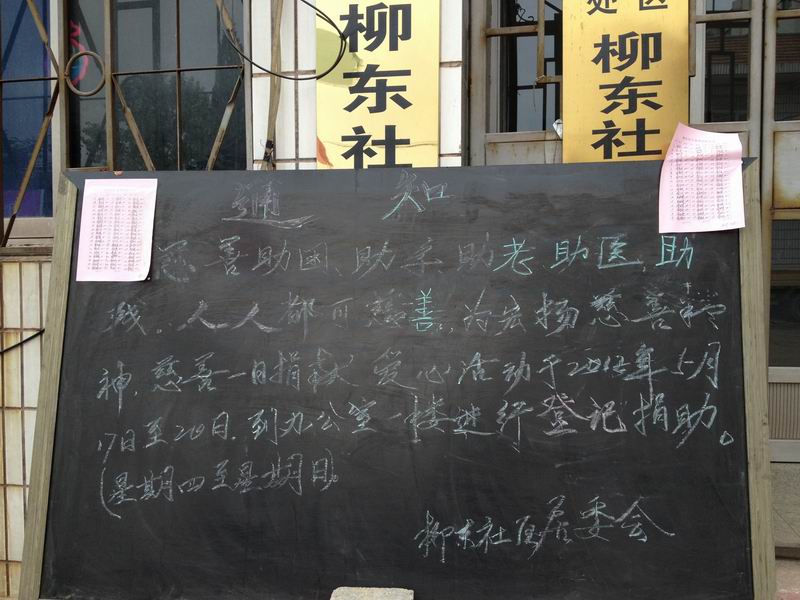 柳东社
处区
柳东社
通知
慈善助困、助学、助老助医、助
残,人人都可慈善,为宏扬慈善精
神,慈善一日捐献爱心活动于2012年5月
17日至20日,到办公室一楼进行登记捐助。
(星期四至星期日)。
柳东社区居委会